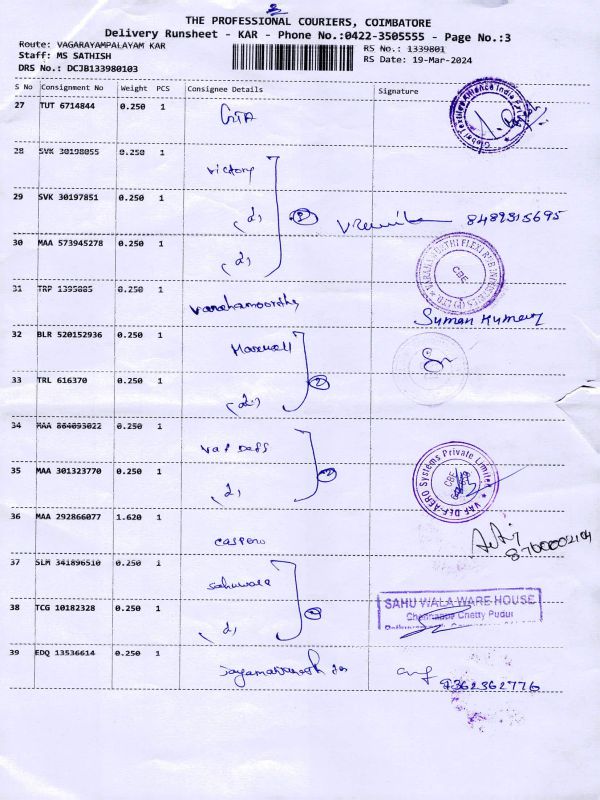 2
THE PROFESSIONAL COURIERS, COIMBATORE
Delivery Runsheet - KAR - Phone No.:0422-3505555 - Page No.:3
Route: VAGARAYAMPALAYAM KAR RS No.: 1339801
Staff: MS SATHISH RS Date: 19-Mar-2024
DRS No.: DCJB133980103
S No Consignment No Weight PCS Consignee Details Signature
27 TUT 6714844 0.250 1 GTA
28 SVK 30198055 0.250 1
victory
29 SVK 30197851 0.250 1
(2) 8489315695
30 MAA 573945278 0.250 1
(2)
31 TRP 1395885 0.250 1
Varahamoorthy
Suman Kumar
32 BLR 520152936 0.250 1
33 TRL 616370 0.250 1
(2)
34 MAA 864093022 0.250 1
Vaf Deff
35 MAA 301323770 0.250 1
(2)
VAF DEF-AERO Systems Private Limited
CBE
36 MAA 292866077 1.620 1
caspero
37 SLM 341896510 0.250 1
Sahuwala
SAHU WALA WARE HOUSE
38 TCG 10182328 0.250 1
Chennappa Chetty Pudur
(2)
39 EDQ 13536614 0.250 1
9362362776